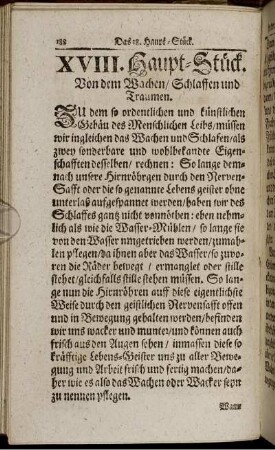 188 Das 18. Haupt-Stück.
XVIII. Haupt-Stück.
Von dem Wachen/ Schlaffen und
Traumen.
ZU dem so ordentlichen und künstlichen
Gebäu des Menschlichen Leibs/ müssen
wir ingleichen das Wachen und Schlafen/ als
zwey sonderbare und wohlbekandte Eigen-
schafften desselben/ rechnen: So lange dem-
nach unsere Hirnröhrgen durch den Nerven-
Safft oder die so genannte Lebens geister ohne
unterlaß aufgespannet werden/ haben wir des
Schlaffes gantz nicht vonnöthen: eben nehm-
lich als wie die Wasser-Mühlen/ so lange sie
von den Wasser umgetrieben werden/ zumah-
len pflegen/ da ihnen aber das Wasser/ so zuvo-
ren die Räder bewegt/ ermanglet oder stille
stehet/ gleichfalls stille stehen müssen. So lan-
ge nun die Hirnröhren auff diese eigentlichste
Weise durch den geistlichen Nervensafft offen
und in Bewegung gehalten werden/ befinden
wir uns wacker und munter/ und können auch
frisch aus den Augen sehen/ inmassen diese so
kräfftige Lebens-Geister uns zu aller Bewe-
gung und Arbeit frisch und fertig machen/ da-
her wie es also das Wachen oder Wacker seyn
zu nennen pflegen.
Wann